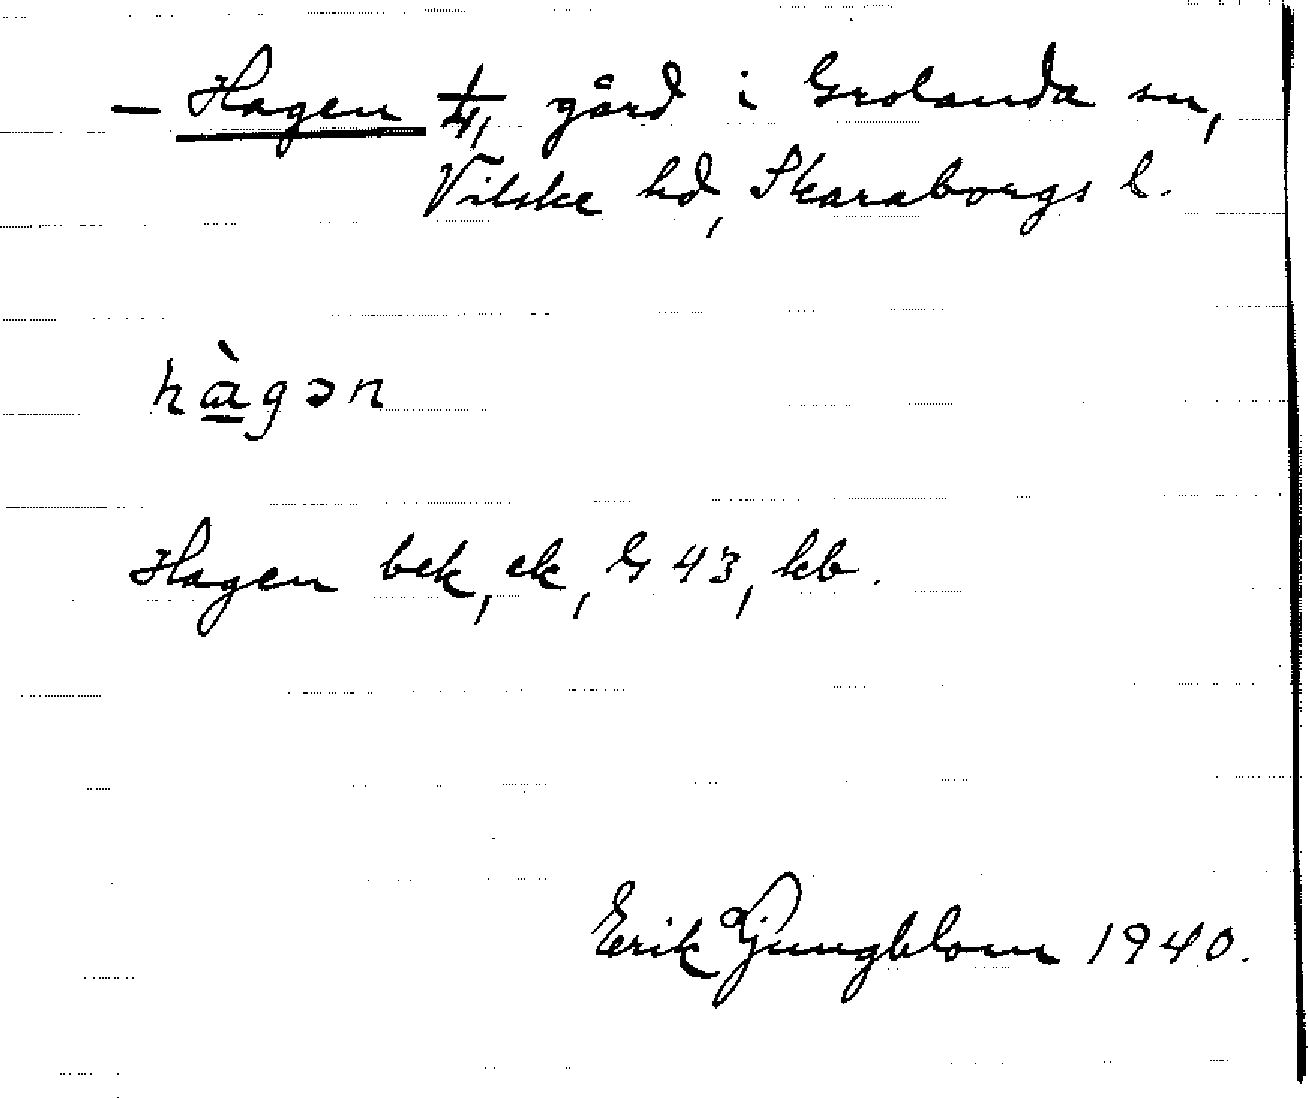 — Hagen 1/4, gård i Grolanda sn,
Vilske hd, Skaraborgs l.
hàgən
Hagen bek, ek, G 43, kb.
Erik Ljungblom 1940.